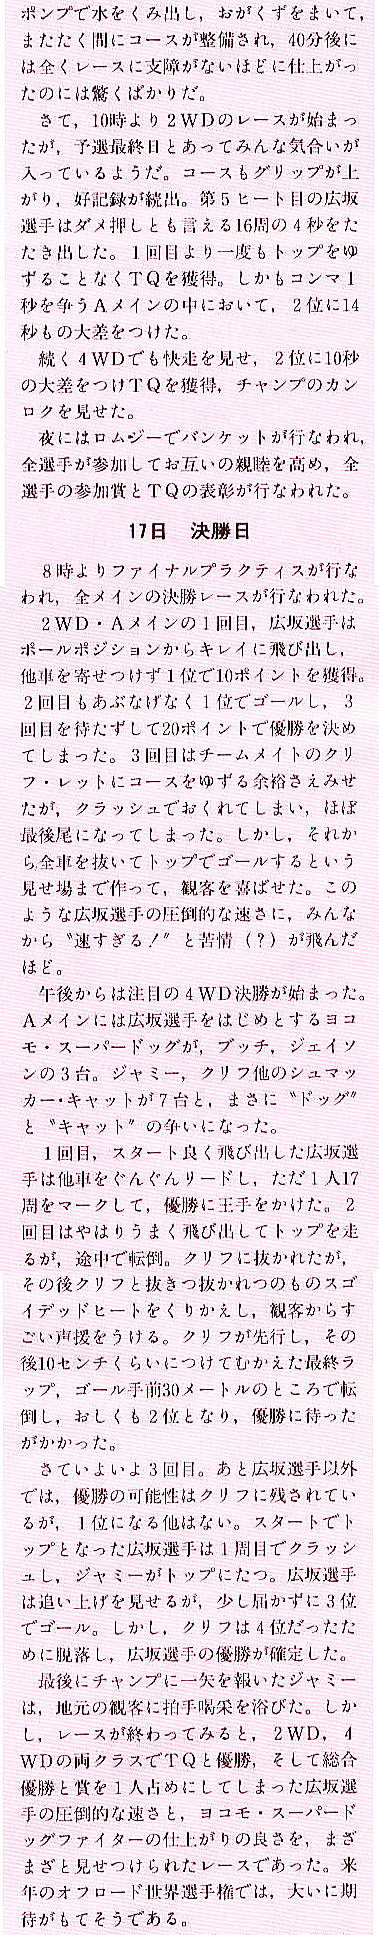 ポンプで水をくみ出し，おがくずをまいて，
またたく間にコースが整備され，40分後に
は全くレースに支障がないほどに仕上がっ
たのには驚くばかりだ。
さて，10時より2WDのレースが始まっ
たが，予選最終日とあってみんな気合いが
入っているようだ。コースもグリップが上
がり，好記録が続出。第5ヒート目の広坂
選手はダメ押しとも言える16周の4秒をた
たき出した。1回目より一度もトップをゆ
ずることなくTQを獲得。しかもコンマ1
秒を争うAメインの中において，2位に14
秒もの大差をつけた。
続く4WDでも快走を見せ，2位に10秒
の大差をつけTQを獲得，チャンプのカン
ロクを見せた。
夜にはロムジーでバンケットが行なわれ，
全選手が参加してお互いの親睦を高め，全
選手の参加賞とTQの表彰が行なわれた。
17日　決勝日
8時よりファイナルプラクティスが行な
われ，全メインの決勝レースが行なわれた。
2WD・Aメインの1回目，広坂選手は
ポールポジションからキレイに飛び出し，
他車を寄せつけず1位で10ポイントを獲得。
2回目もあぶなげなく1位でゴールし，3
回目を待たずして20ポイントで優勝を決め
てしまった。3回目はチームメイトのクリ
フ・レットにコースをゆずる余裕さえみせ
たが，クラッシュでおくれてしまい，ほぼ
最後尾になってしまった。しかし，それか
ら全車を抜いてトップでゴールするという
見せ場まで作って，観客を喜ばせた。この
ような広坂選手の圧倒的な速さに，みんな
から〝速すぎる！〞と苦情（？）が飛んだ
ほど。
午後からは注目の4WD決勝が始まった。
Aメインには広坂選手をはじめとするヨコ
モ・スーパードッグが，ブッチ，ジェイソ
ンの3台。ジャミー，クリフ他のシュマッ
カー・キャットが7台と，まさに〝ドッグ〞
と〝キャット〞の争いになった。
1回目，スタート良く飛び出した広坂選
手は他車をぐんぐんリードし，ただ1人17
周をマークして，優勝に王手をかけた。2
回目はやはりうまく飛び出してトップを走
るが，途中で転倒。クリフに抜かれたが，
その後クリフと抜きつ抜かれつのものスゴ
イデッドヒートをくりかえし，観客からす
ごい声援をうける。クリフが先行し，その
後10センチくらいにつけてむかえた最終ラ
ップ，ゴール手前30メートルのところで転
倒し，おしくも2位となり，優勝に待った
がかかった。
さていよいよ3回目。あと広坂選手以外
では，優勝の可能性はクリフに残されてい
るが，1位になる他はない。スタートでト
ップとなった広坂選手は1周目でクラッシ
ュし，ジャミーがトップにたつ。広坂選手
は追い上げを見せるが，少し届かずに3位
でゴール。しかし，クリフは4位だったた
めに脱落し，広坂選手の優勝が確定した。
最後にチャンプに一矢を報いたジャミー
は，地元の観客に拍手喝采を浴びた。しか
し，レースが終わってみると，2WD，4
WDの両クラスでTQと優勝，そして総合
優勝と賞を1人占めにしてしまった広坂選
手の圧倒的な速さと，ヨコモ・スーパード
ッグファイターの仕上がりの良さを，まざ
まざと見せつけられたレースであった。来
年のオフロード世界選手権では，大いに期
待がもてそうである。